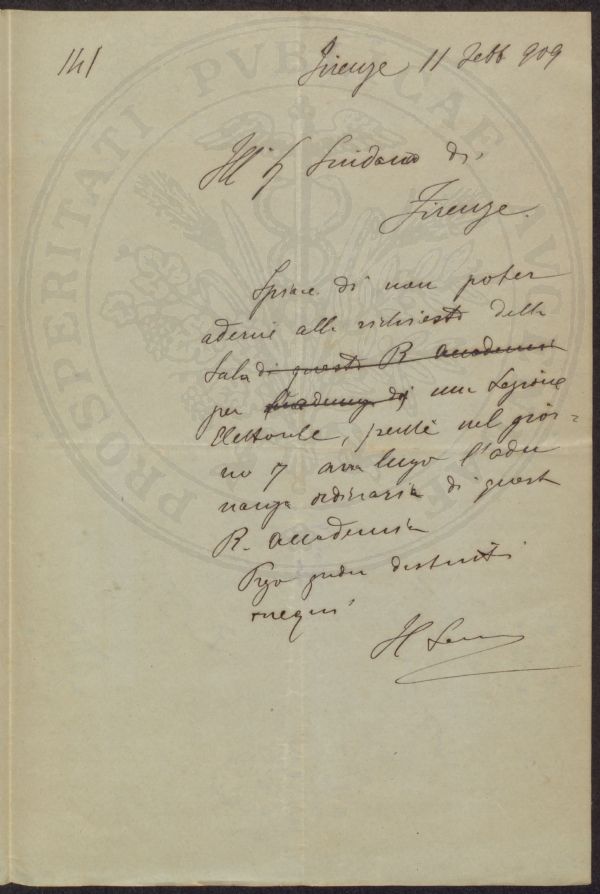 141
Firenze 11 Febb 909
Ill. Sindaco di
Firenze.
Spiace di non poter
aderire alla richiesta della
Sala di questa R. Accademia
per una Sezione
Elettorale, perché nel gior=
no 7 avrà luogo l'adu
nanza ordinaria di questa
R. Accademia
Prego gradire distinti
ossequi
Il
PROSPERITATI PVBLICAE AVG